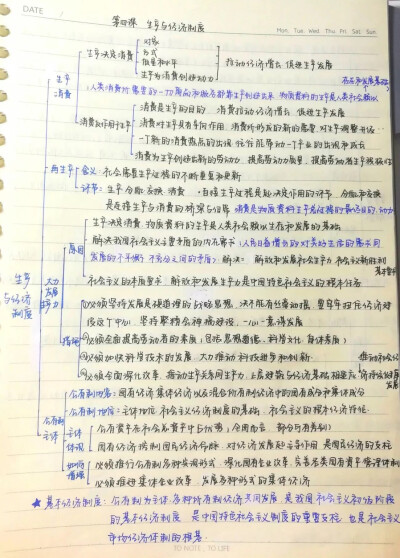 DATE
Mon. Tue. Wed. Thu. Fri. Sat. Sun.
第四课 生产与经济制度
对象
生产决定消费 方式
质量和水平 推动经济增长 促进生产发展
生产为消费创造动力
生产
消费
消费是生产的目的 消费拉动经济增长 促进生产发展
消费反作用于生产 消费对生产具有导向作用 消费所形成的新的需要 对生产调整升级
一个新的消费热点的出现 往往能带动一个产业的出现和成长
消费为生产创造出新的劳动力 提高劳动力质量 提高劳动者生产积极性
再生产 含义 社会需要生产过程的不断重复和更新
环节 生产 分配 交换 消费 直接生产过程是起决定作用的环节 分配和交换
是连接生产与消费的桥梁与纽带 消费是物质资料生产总过程的最终目的 动力
生产决定消费 物质资料的生产是人类社会赖以生存和发展的基础
原因 解决我国社会主义主要矛盾的内在需求(人民日益增长的对美好生活的需求同
发展的不平衡 不充分之间的矛盾) 解决:解放和发展社会生产力
社会主义的本质要求 解放和发展生产力是中国特色社会主义的根本任务
生产
与经济
制度
大力
发展
生产
措施
①必须坚持发展是硬道理的战略思想 决不能有丝毫动摇
这个中心 坚持聚精会神搞建设 一心一意谋发展
②必须全面提高劳动者的素质
③必须加快科学技术的发展 大力推动科技进步和创新
④必须全面深化改革
公有制
主体
公有制内容:国有经济 集体经济以及混合所有制经济中的国有成分和集体成分
公有制地位:主体地位 社会主义经济制度的基础 社会主义的根本经济特征
主体
体现
公有资产在社会总资产中占优势
国有经济控制国民经济命脉 对经济发展起主导作用 是国民经济的支柱
如何
增强
必须推行公有制多种实现形式 深化国有企业改革 完善各类国有资产管理体制
必须推进集体企业改革 发展多种形式的集体经济
★基本经济制度:公有制为主体 多种所有制经济共同发展 是我国社会主义初级阶段
的基本经济制度 是中国特色社会主义制度的重要支柱 也是社会主义
市场经济体制的根基
TO NOTE, TO LIFE